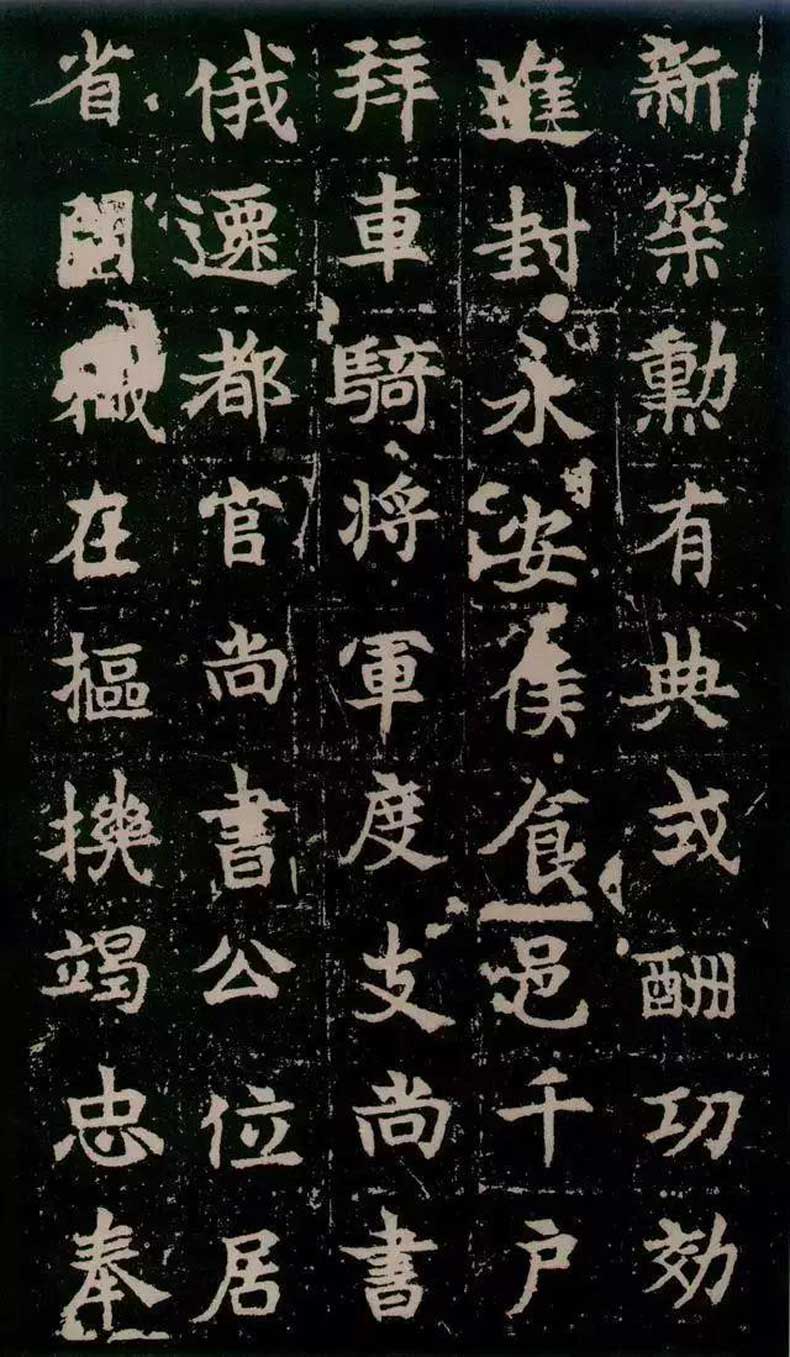 新策勳有典或酬功効
進封永安侯食邑千户
拜車騎将軍度支尚書
俄遷都官尚書公位居
省在樞機竭忠奉